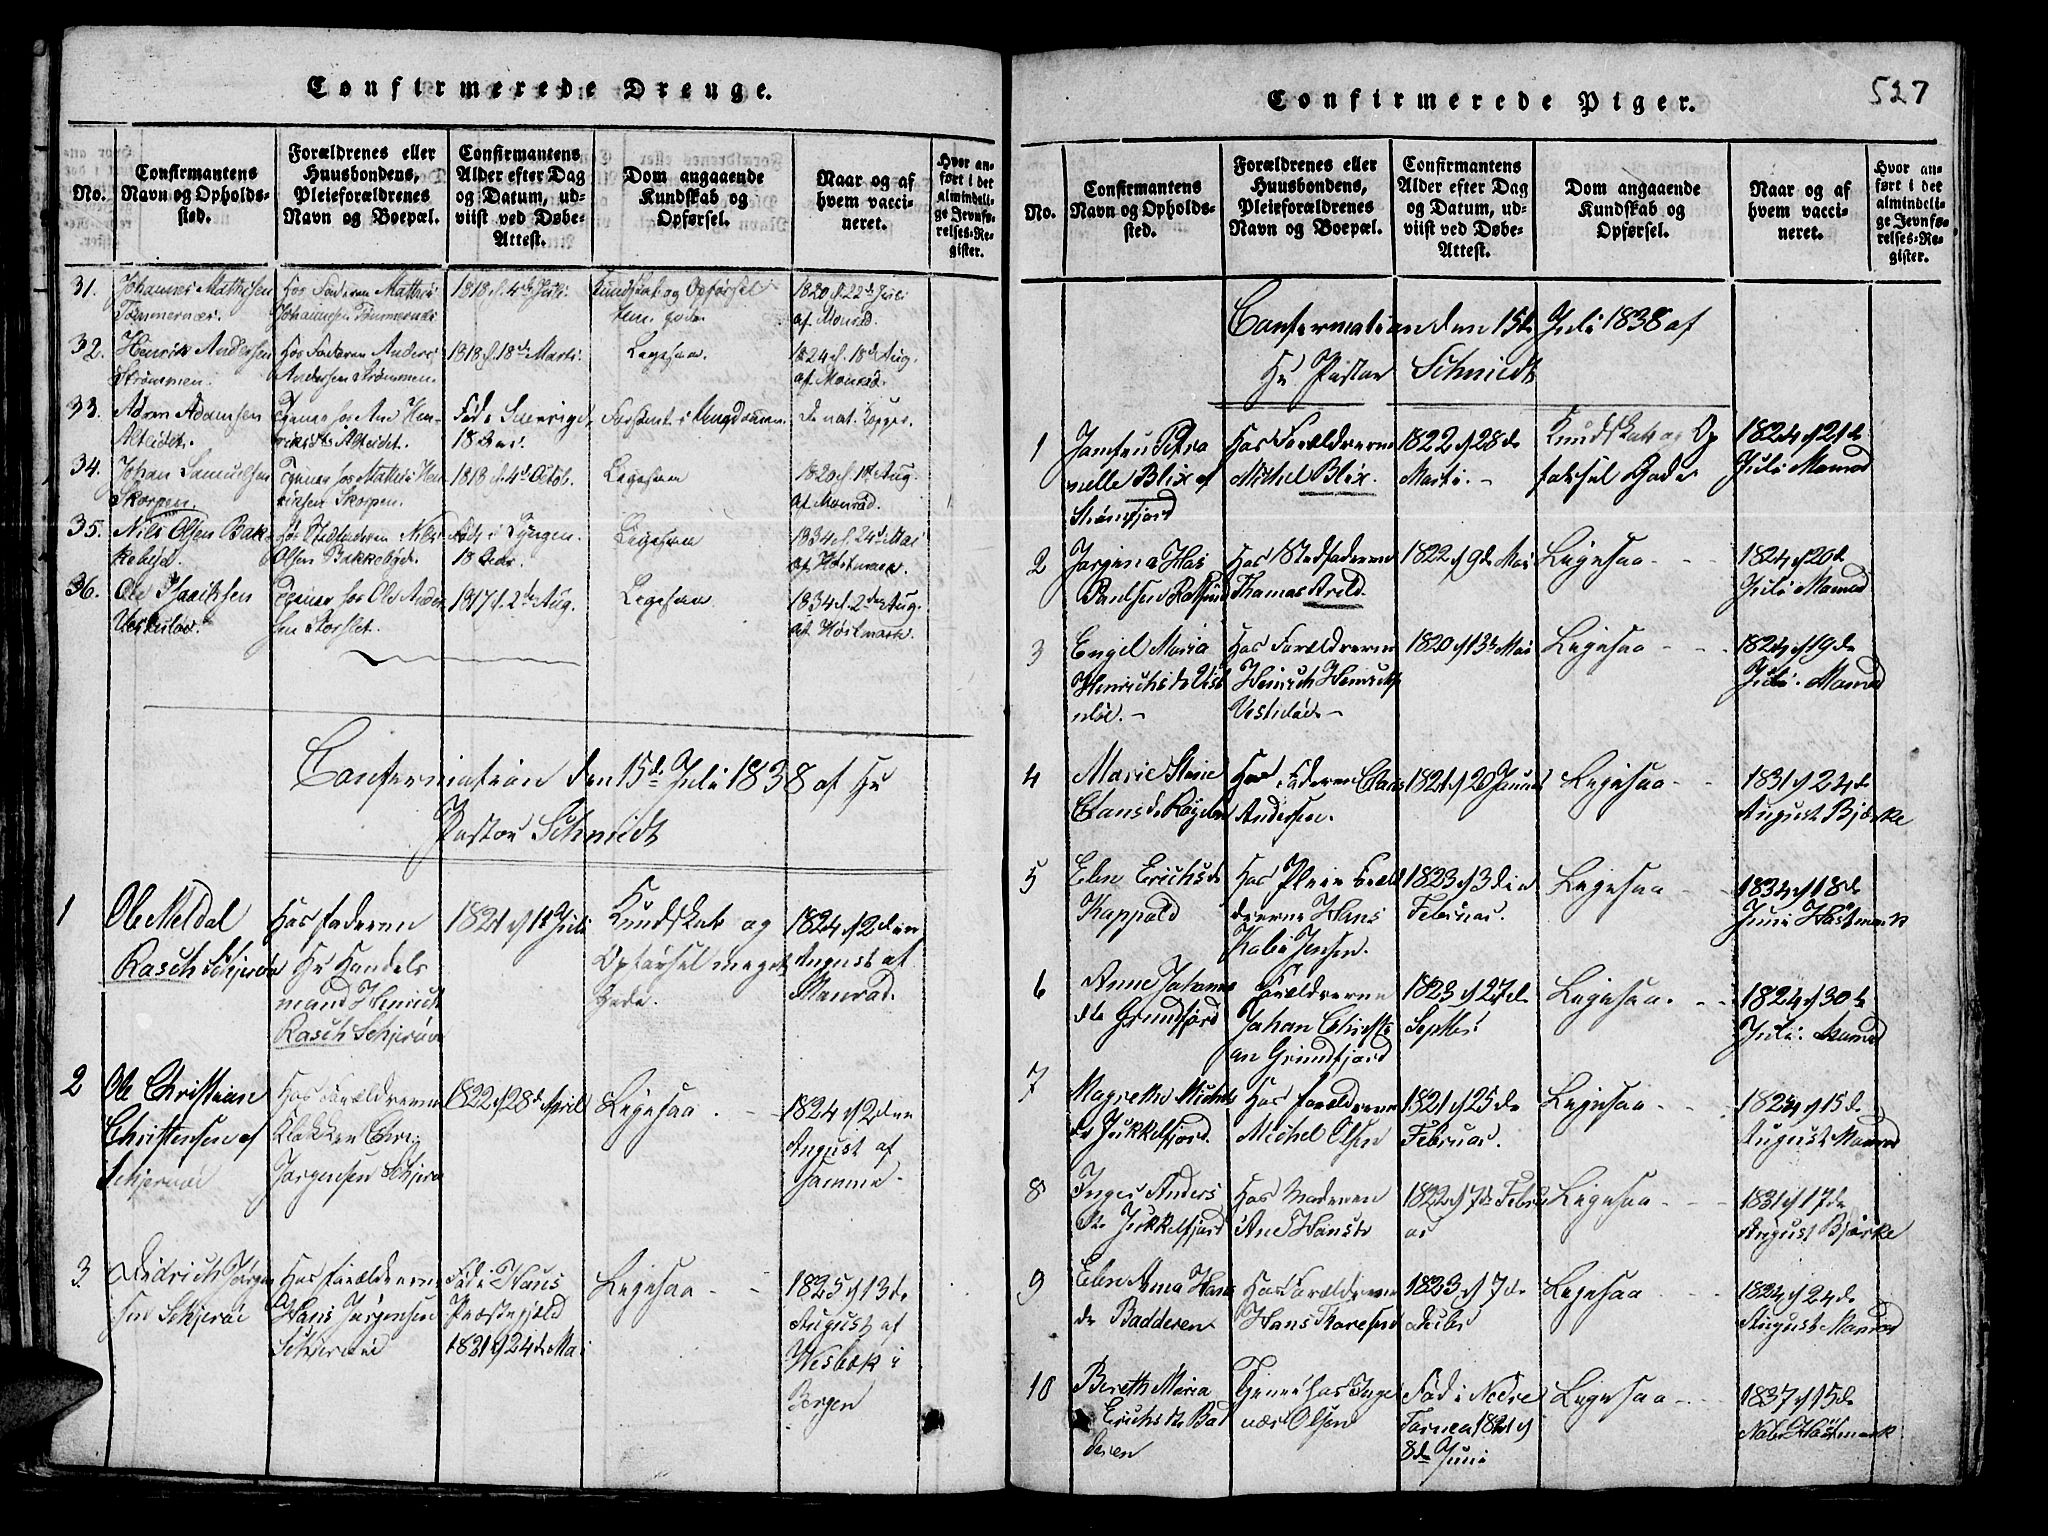 Confirmerede Drenge.
No.
Confirmantens
Navn og Opholds-
sted.
Forældrenes eller
Huusbondens,
Pleieforældrenes
Navn og Boepæl.
Confirmantens
Alder efter Dag
og Datum, ud-
viist ved Døbe-
Attest.
Dom angaaende
Kundskab og
Opførsel.
Naar og af
hvem vacci-
neret.
Hvor an-
ført i det
almindeli-
ge Jevnfø-
relses-Re-
gister.
31.
Johannes Mathisen
Tømmernæs.
Hos Faderen Mathis
Johannesen Tømmernæs
1818 d. 4de
Kundskab og Opførsel
1820 d. 22de Juli
af Monrad.
32.
Henrik Andersen
Strømmen.
Hos Faderen Anders
Andersen Strømmen.
1818 d. 18de Marts.
Ligesaa.
1824 d. 18de Aug.
af Monrad.
33.
Adam Adamsen
Alteidet.
Tjener hos
Alteidet.
Født i Sverrige,
18 Aar.
De nat. Kopper.
34.
Johan Samuelsen
Skorpen.
Tjener hos Mathis Hen-
riksen Skorpen.
1818 d. 4de Octob.
Ligesaa
1820 d. 1ste Aug.
af Monrad.
35.
Nils Olsen Bak-
kebye.
Hos Stedfaderen Nils
Olsen Bakkebye.
Født i Lyngen.
18 Aar.
Ligesaa
1834 d. 24de Mai
af Høstmark.
36.
Ole
Hos Ole Ander-
sen Storslet.
1817 d. 2den Aug.
Ligesaa
1834 d. 2den Aug.
af Høstmark.
Confermation den 15de Juli 1838 af Hr
Pastor Schmidt
1
Ole Meldal
Rasch Schjerøe
Hos faderen
Hr Handels
mand Henrich
Rasch Schjerøe
1821 d 1t Juli
Kundskab og
Opførsel meget
Gode.
1824 d 2den
August af
Monrad.
2
Ole Christian
Christensen af
Schjervøe
Hos Forældrerne
Klokker Chri
Jørgensen Schjerø
1822 d 28de April
Ligesaa. -
1824 d 2den
August af
Samme.
3
Didrich Jørgen
sen Schjerøe
Hos forældrerne
Hans Jørgensen
Schjerøe
Fød i Haus
Præstegjeld
1821 d 24de Mai
Ligesaa - -
1825 d 13de
August af
Wesbek i
Bergen
Confirmerede Piger.
527
No.
Confirmantens
Navn og Opholds-
sted.
Forældrenes eller
Huusbondens,
Pleieforældrenes
Navn og Boepæl.
Confirmantens
Alder efter Dag
og Datum, ud-
viist ved Døbe-
Attest.
Dom angaaende
Kundskab og
Opførsel.
Naar og af
hvem vacci-
neret.
Hvor an-
ført i det
almindeli-
ge Jevnfø-
relses-Re-
gister.
Confermation den 15de Juli 1838 af
Hr Pastor Schmidt
1
Petro
nelle Blix af
Hos Forældrerne
Michel Blix.
1822 d 28de
Marts. -
Kundskab og Op
førsel Gode
1824 d 21de
Juli Monrad
2
Paulsen
Hos Stedfaderen
Thomas Arild.
1822 d 9de Mai
Ligesaa - -
1824 d 20de
Juli Monrad
3
Engel Maria
Henrichsdr Vest
erløe. -
Hos Forældrerne
Heinrich Henrichs
1820 d 13de Mai
Ligesaa - -
1824 d 19de
Juli. Monrad
4
Marie Stine
Clausdr
Hos Faderen Claus
Andersen.
1821 d 20 Januar
Ligesaa - -
1831 d 24de
August Bjerke
5
Elen Erichsdr
Kappold
Hos Pleie Foræl
drerne Hans
Jensen.
1823 d 3die
Februar.
Ligesaa - -
1834 d 18de
Juni Høstmark
6
Anne Johannes
dtr Grundfjord
Forældrerne
Johan Christi
an Grundfjord
1823 d 27de
Septbr
Ligesaa. - -
1824 d 30te
Juli. Monrad
7
Magrethe Michels
dr Jukkelfjord.
Hos forældrerne
Michel Olsen
1821 d 25de
Februar.
Ligesaa - -
1824 d 15de
August Monrad
8
Inger Anders
dtr Jukkelfjord
Hos Moderen
Ane Hansdr
1822 d 7de Febru
ar
Ligesaa - -
1831 d 17de
August Bjerke
9
Elen Anna Hans
dr Badderen
Hos Forældrerne
Hans
1823 d 7de
Ligesaa - -
1824 d 24de
August Monrad
10
Bereth Maria
Erichsdtr Bad
deren
Tjener hos Inge
vær Olsen
Fød i Nedre
Torneå 1821 d
8de Juni
Ligesaa - -
1837 d 15de
Høstmark